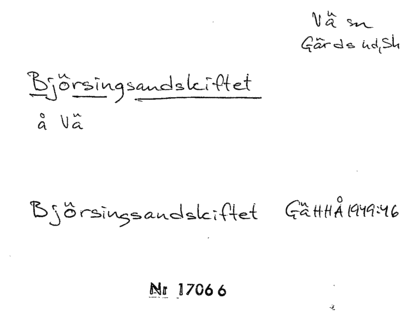 Vä sn
Gärds hd, Sk
Björsingsandskiftet
å Vä
Björsingsandskiftet GäHHÅ 1949:46
Nr 17066